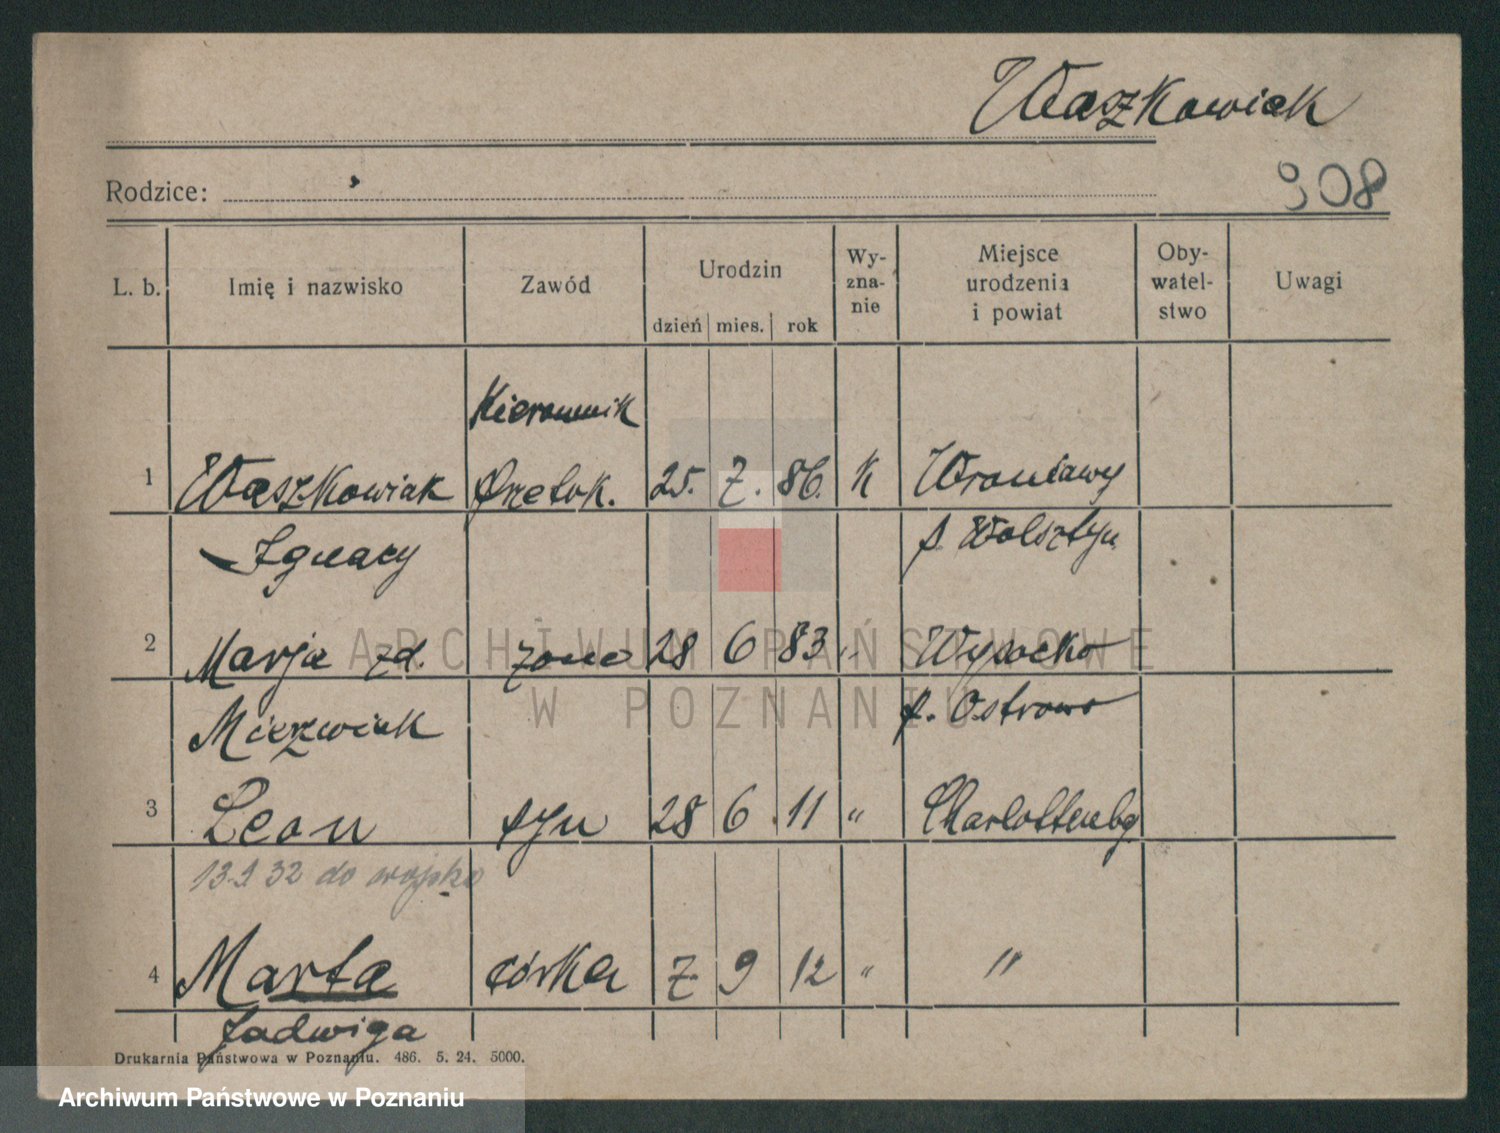 Waszkowiak
Rodzice:
908
L. b.
Imię i nazwisko
Zawód
Urodzin
dzień mies. rok
Wy-
zna-
nie
Miejsce
urodzenia
i powiat
Oby-
watel-
stwo
Uwagi
Kierownik
1 Waszkowiak 25. 7. 86. K Wroniawy
Ignacy p. Wolsztyn
2 Marja zd. żona 28 6 83 " Wysocko
Mierzwiak p. Ostrowo
3 Leon syn 28 6 11 " Charlottenbg
13.9 32 do wojska
4 Marta córka 7 9 12 " "
Jadwiga
Drukarnia Państwowa w Poznaniu. 486. 5. 24. 5000.
ARCHIWUM PAŃSTWOWE
W POZNANIU
Archiwum Państwowe w Poznaniu